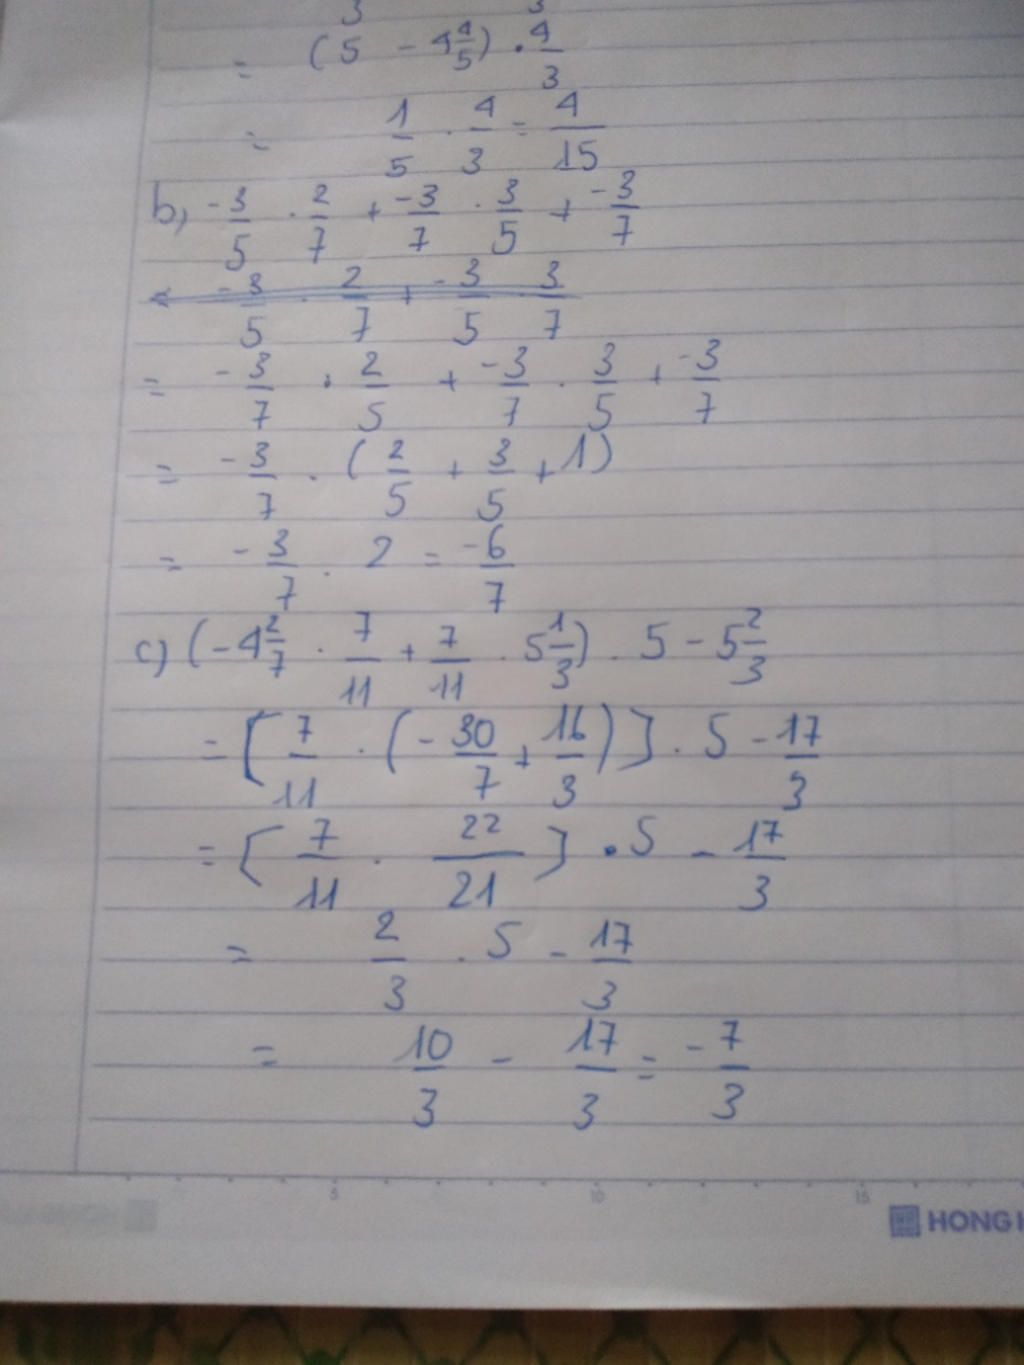 3 3
= (5 - 4 4/5) . 4/3
= 1/5 . 4/3 = 4/15
b, -3/5 . 2/7 + -3/7 . 3/5 + -3/7
-3/5 . 2/7 + -3/5 3/7
= -3/7 . 2/5 + -3/7 . 3/5 + -3/7
= -3/7 . (2/5 + 3/5 + 1)
= -3/7 . 2 = -6/7
c) (-4 2/7 . 7/11 + 7/11 . 5 1/3) . 5 - 5 2/3
= [7/11 . (-30/7 + 16/3)] . 5 - 17/3
= [7/11 . 22/21] . 5 - 17/3
= 2/3 . 5 - 17/3
= 10/3 - 17/3 = -7/3
5 10 15
HONG